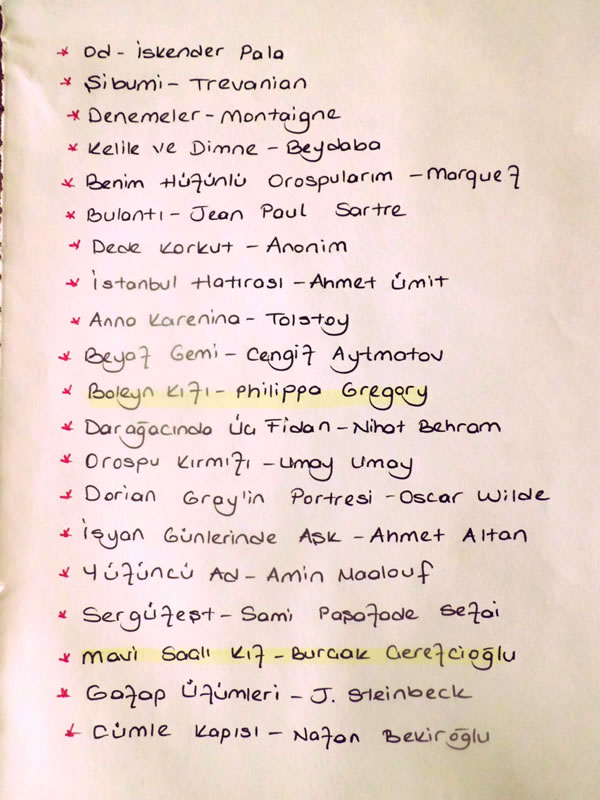 * Od - İskender Pala
* Şibumi - Trevanian
* Denemeler - Montaigne
* Kelile ve Dimne - Beydaba
* Benim Hüzünlü Orospularım - Marquez
* Bulantı - Jean Paul Sartre
* Dede Korkut - Anonim
* İstanbul Hatırası - Ahmet Ümit
* Anna Karenina - Tolstoy
* Beyaz Gemi - Cengiz Aytmatov
* Boleyn Kızı - Philippa Gregory
* Darağacında Üç Fidan - Nihat Behram
* Orospu Kırmızı - Umay Umay
* Dorian Gray'in Portresi - Oscar Wilde
* İşyan Günlerinde Aşk - Ahmet Altan
* Yüzüncü Ad - Amin Maalouf
* Sergüzeşt - Sami Paşazade Sezai
* Mavi Saçlı Kız - Burcak Çerezcioğlu
* Gazap Üzümleri - J. Steinbeck
* Cümle Kapısı - Nazan Bekiroğlu